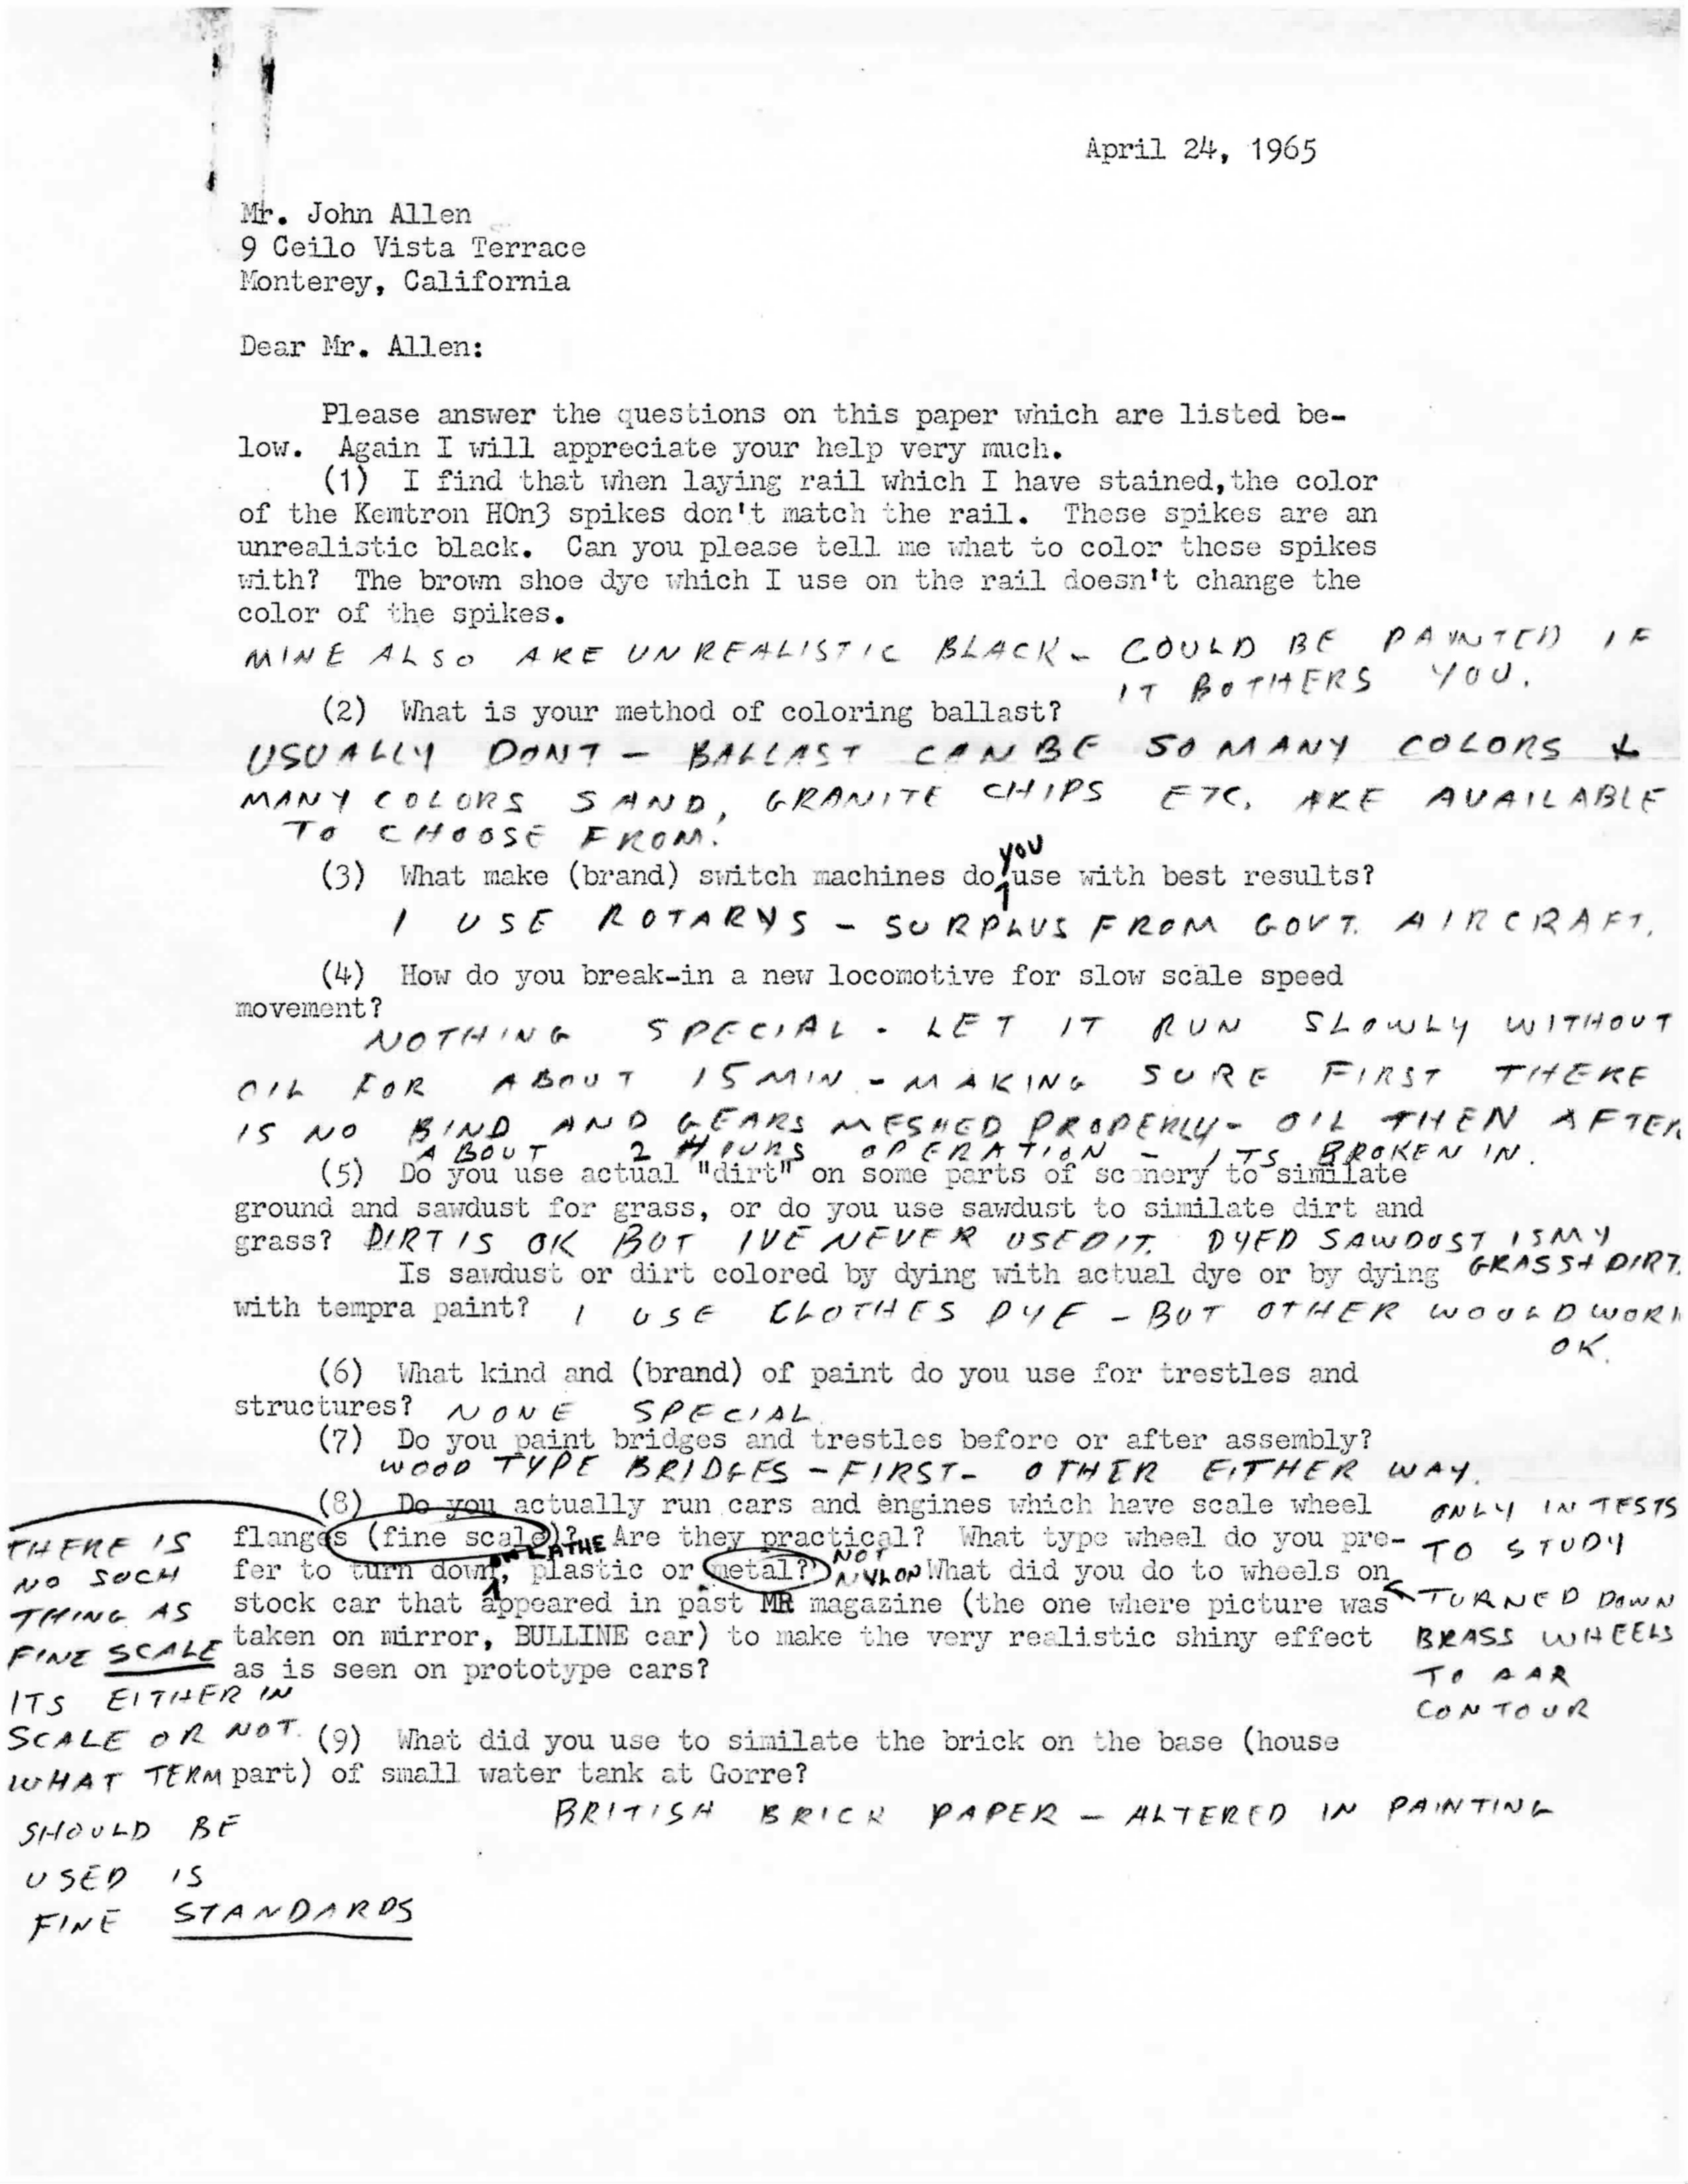 April 24, 1965
Mr. John Allen
9 Ceilo Vista Terrace
Monterey, California
Dear Mr. Allen:
Please answer the questions on this paper which are listed be-
low. Again I will appreciate your help very much.
(1) I find that when laying rail which I have stained, the color
of the Kemtron HOn3 spikes don't match the rail. These spikes are an
unrealistic black. Can you please tell me what to color these spikes
with? The brown shoe dye which I use on the rail doesn't change the
color of the spikes.
MINE ALSO ARE UNREALISTIC BLACK - COULD BE PAINTED IF
IT BOTHERS YOU.
(2) What is your method of coloring ballast?
USUALLY DONT - BALLAST CAN BE SO MANY COLORS &
MANY COLORS SAND, GRANITE CHIPS ETC. ARE AVAILABLE
TO CHOOSE FROM.
you
(3) What make (brand) switch machines do use with best results?
I USE ROTARYS - SURPLUS FROM GOVT. AIRCRAFT.
(4) How do you break-in a new locomotive for slow scale speed
movement?
NOTHING SPECIAL - LET IT RUN SLOWLY WITHOUT
OIL FOR ABOUT 15 MIN - MAKING SURE FIRST THERE
IS NO BIND AND GEARS MESHED PROPERLY - OIL THEN AFTER
ABOUT 2 HOURS OPERATION - ITS BROKEN IN.
(5) Do you use actual "dirt" on some parts of scenery to similate
ground and sawdust for grass, or do you use sawdust to similate dirt and
grass? DIRT IS OK BUT IVE NEVER USED IT. DYED SAWDUST IS MY
GRASS & DIRT.
Is sawdust or dirt colored by dying with actual dye or by dying
with tempra paint? I USE CLOTHES DYE - BUT OTHER WOULD WORK
OK.
(6) What kind and (brand) of paint do you use for trestles and
structures? NONE SPECIAL
(7) Do you paint bridges and trestles before or after assembly?
WOOD TYPE BRIDGES - FIRST - OTHER EITHER WAY.
(8) Do you actually run cars and engines which have scale wheel
flanges (fine scale)? Are they practical? What type wheel do you pre-
ON LATHE
NOT
NYLON
fer to turn down, plastic or metal? What did you do to wheels on
stock car that appeared in past MR magazine (the one where picture was
taken on mirror, BULLINE car) to make the very realistic shiny effect
as is seen on prototype cars?
ONLY IN TESTS
TO STUDY
TURNED DOWN
BRASS WHEELS
TO AAR
CONTOUR
THERE IS
NO SUCH
THING AS
FINE SCALE
ITS EITHER IN
SCALE OR NOT.
WHAT TERM
SHOULD BE
USED IS
FINE STANDARDS
(9) What did you use to similate the brick on the base (house
part) of small water tank at Gorre?
BRITISH BRICK PAPER - ALTERED IN PAINTING